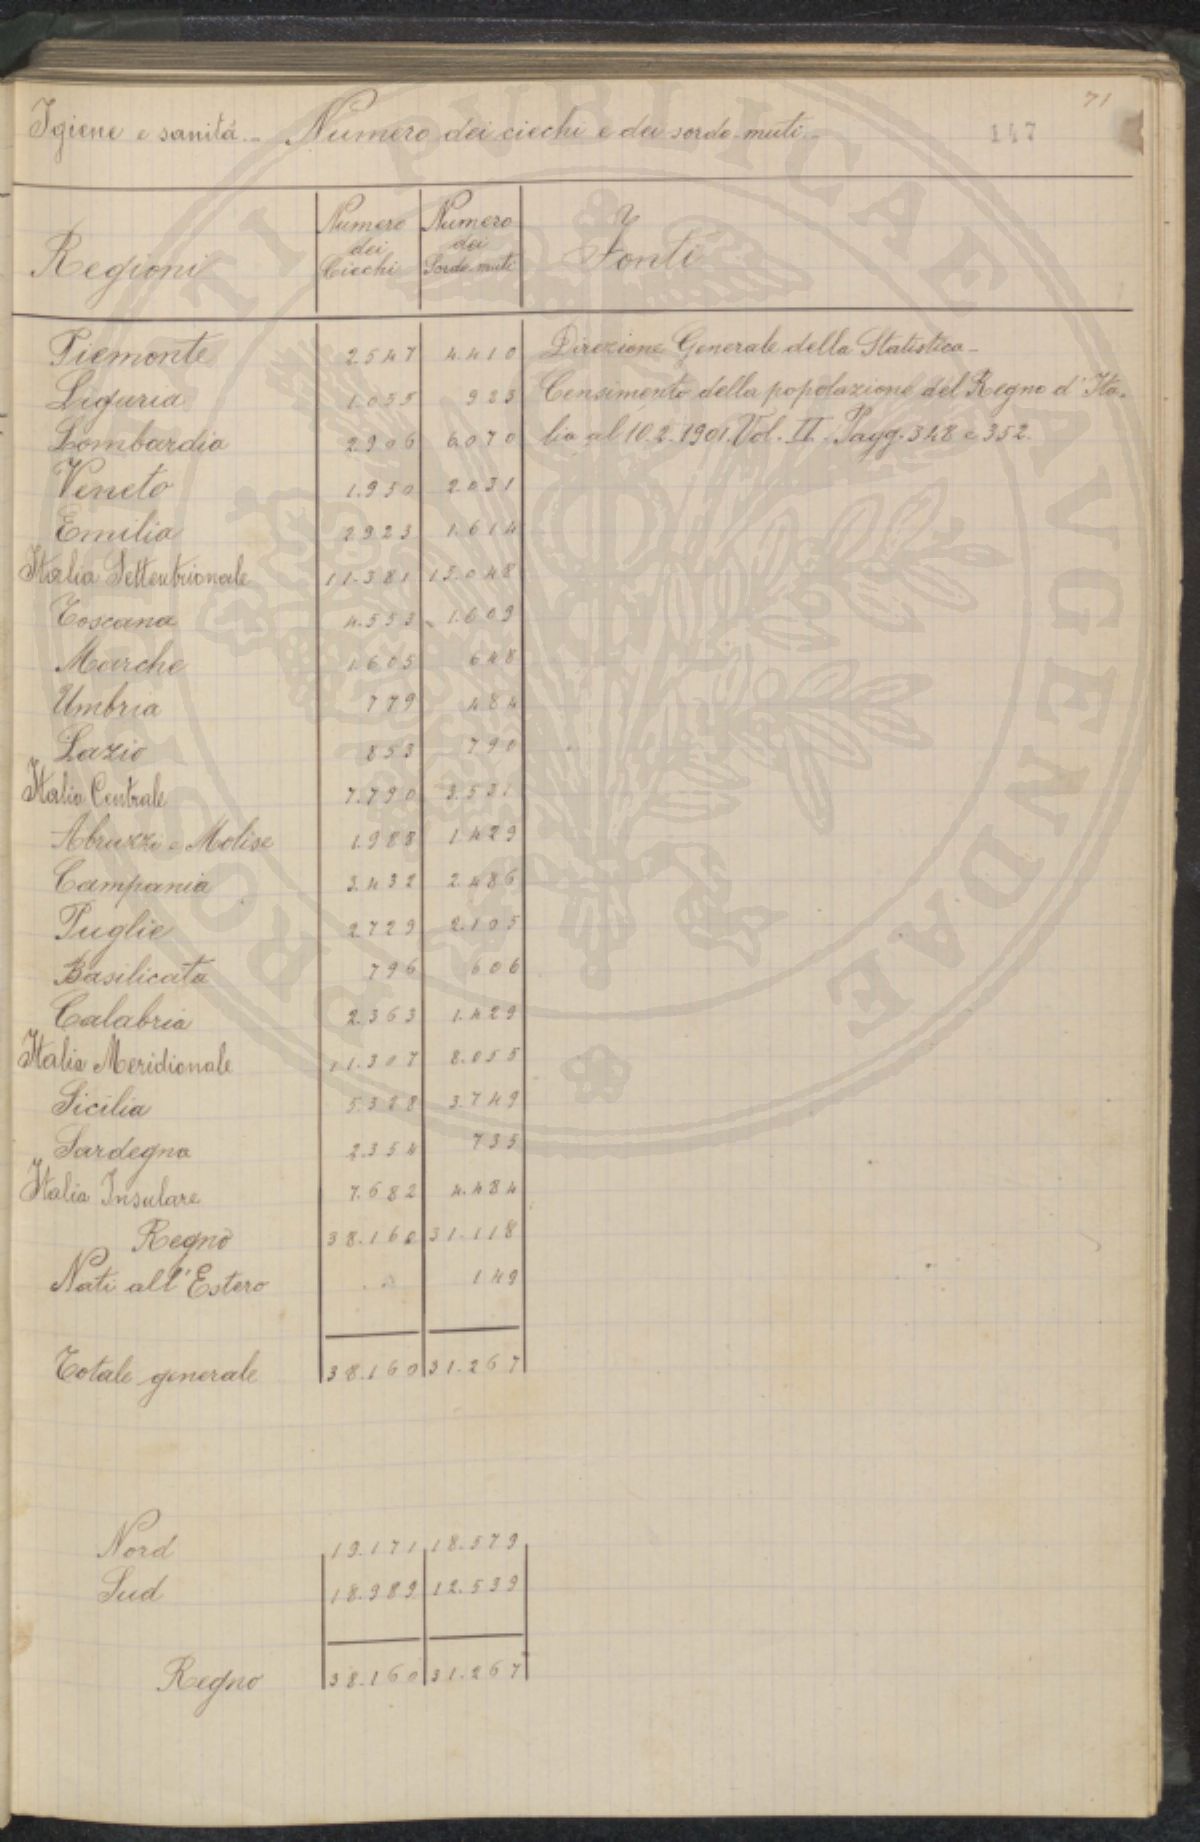 71
Igiene e sanità.- Numero dei ciechi e dei sordo-muti.-
147
Regioni | Numero dei Ciechi | Numero dei Sordo-muti | Fonti
Piemonte 2547 4.410 Direzione Generale della Statistica-
Liguria 1.055 923 Censimento della popolazione del Regno d'Ita-
Lombardia 2906 6070 lia al 10.2.1901. Vol. II. Pagg. 348 e 352.
Veneto 1.950 2.031
Emilia 2923 1.614
Italia Settentrionale 11.381 15.048
Toscana 4.553 1.609
Marche 1.605 648
Umbria 779 484
Lazio 853 790
Italia Centrale 7.790 3.531
Abruzzi e Molise 1.988 1.429
Campania 3.432 2.486
Puglie 2729 2.105
Basilicata 796 606
Calabria 2.363 1.429
Italia Meridionale 11.307 8.055
Sicilia 5328 3.749
Sardegna 2.354 735
Italia Insulare 7.682 4.484
Regno 38.160 31.118
Nati all'Estero 149
Totale generale 38.160 31.267
Nord 19.171 18.579
Sud 18.989 12.539
Regno 38.160 31.267
PUBLICAE AVGENDAE